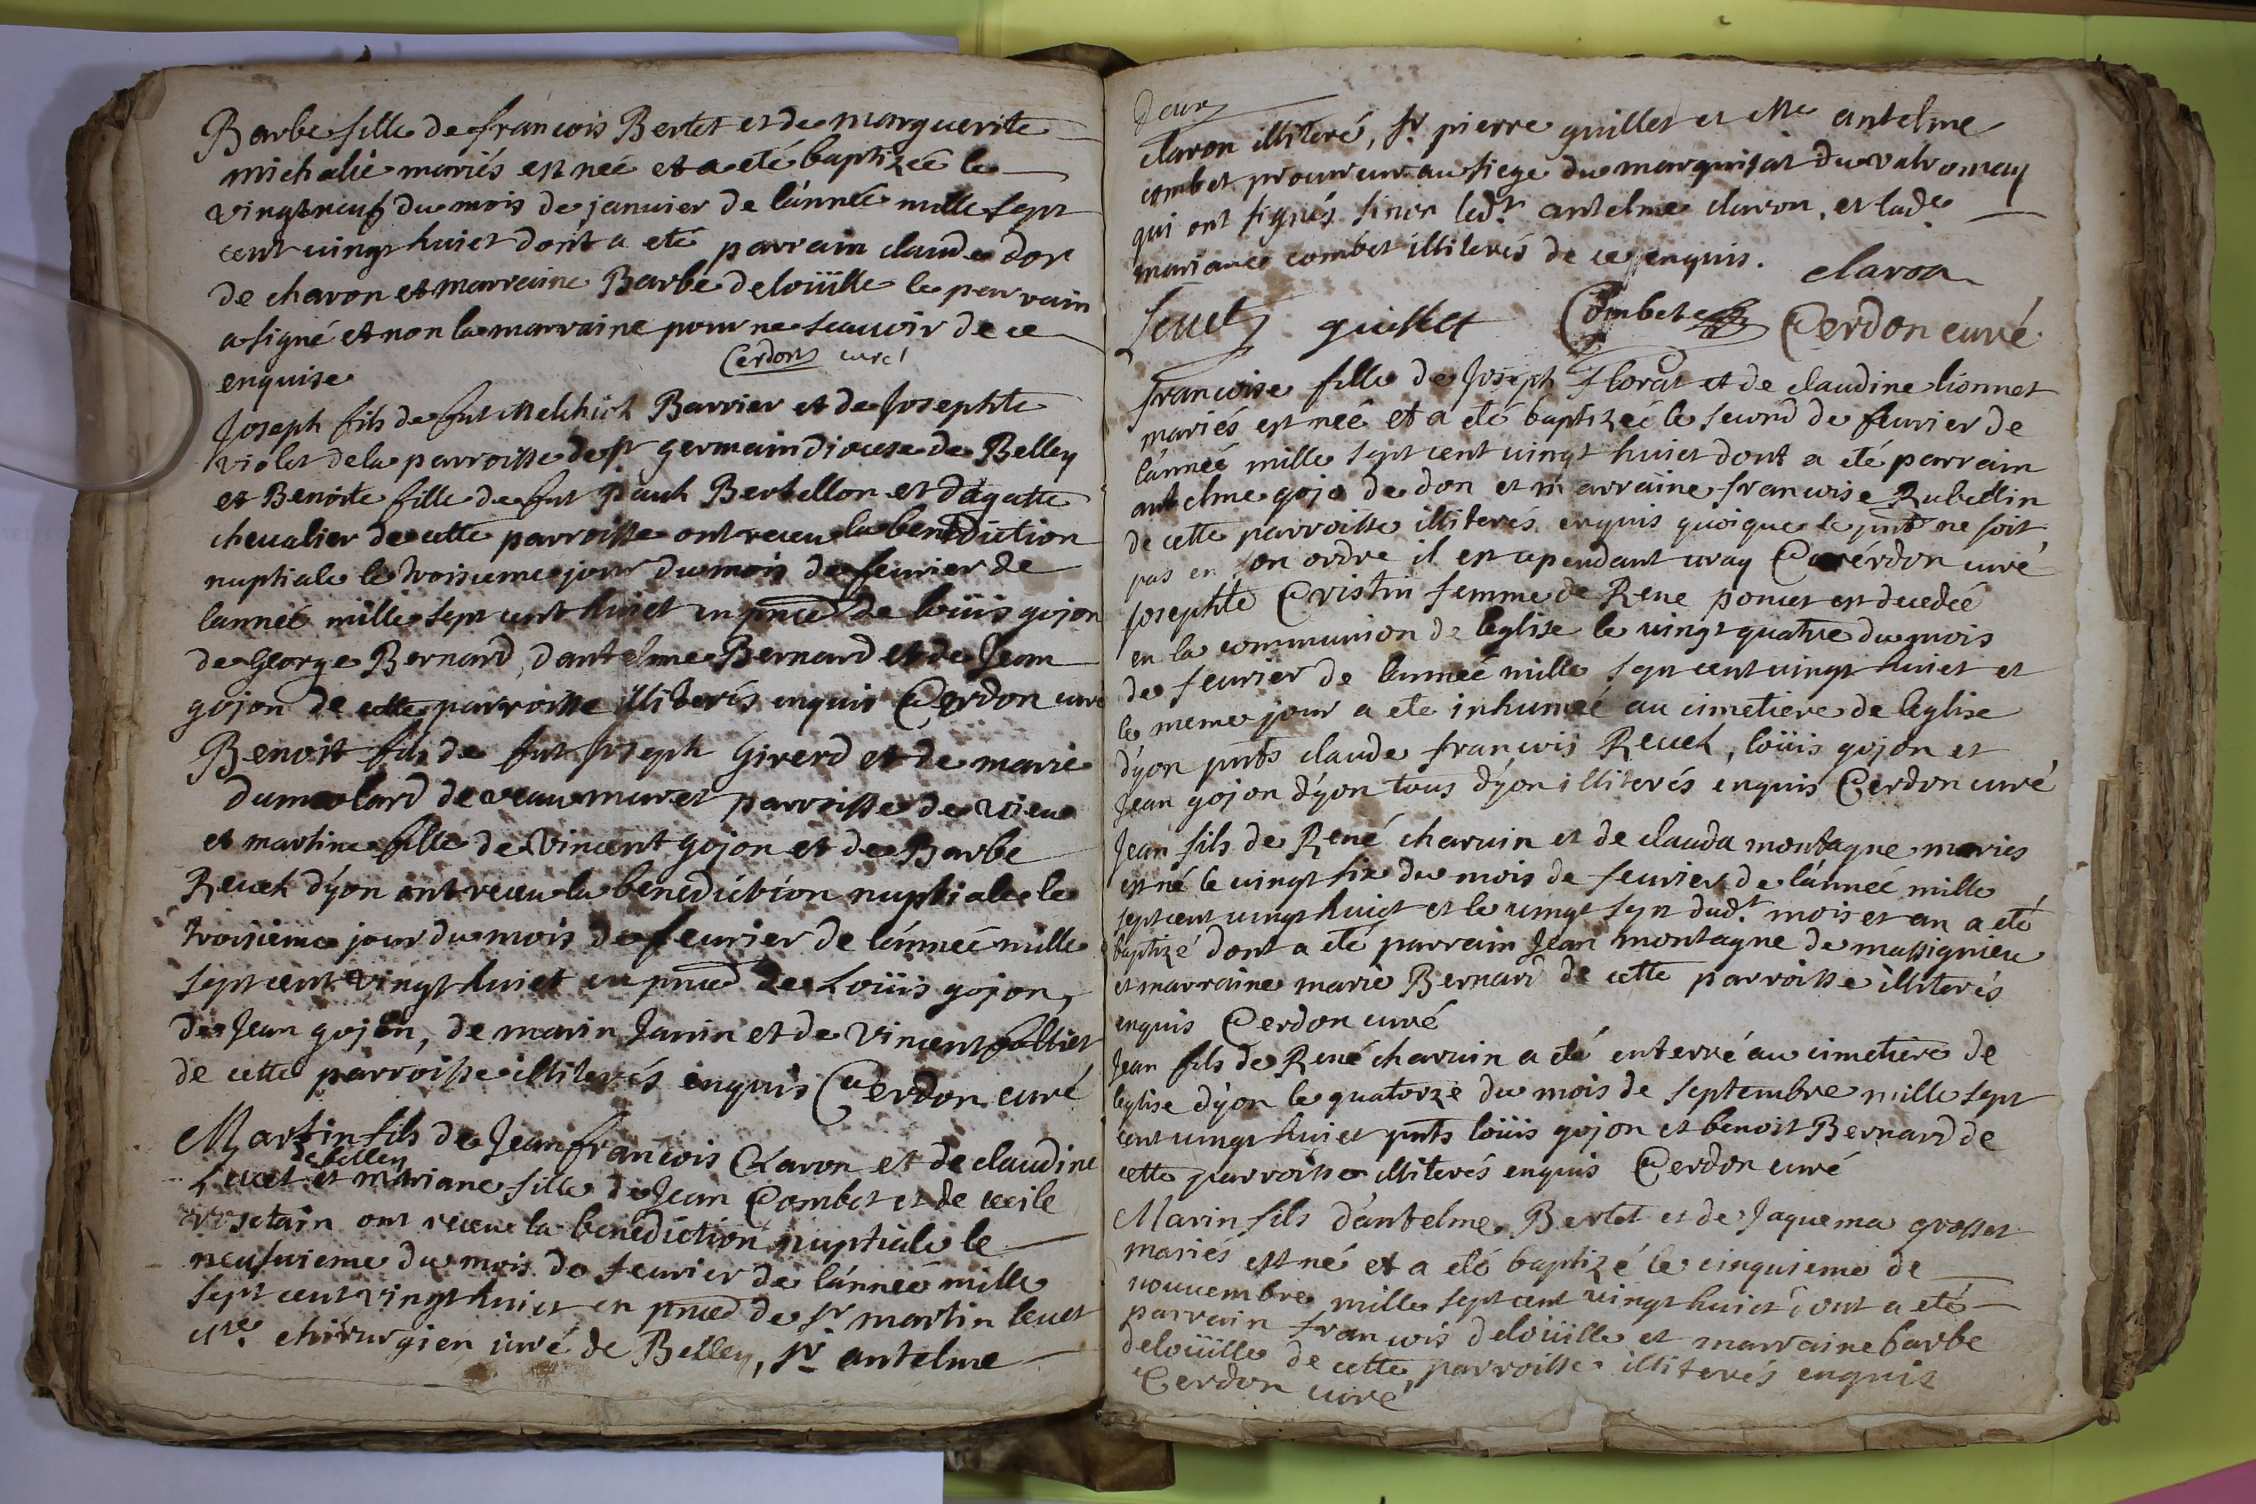 Barbe fille de francois Bertet et de marguerite
michalie mariés est neé et a eté baptizeé le
vingt neuf du mois de januier de l'anneé mille sept
cent uingt huict dont a eté parrain claude dor
de charon et marraine Barbe deloüille le parrain
a signé et non la marraine pour ne scauoir de ce
enquise Cerdon curé
Joseph fils de fut Melchiol Barrier et de Josephte
violet de la parroisse de st germain diocese de Belley
et Benoite fille de fut paul Bertellon et d'agatte
cheualier de cette parroisse ont receu la benediction
nuptiale le troisieme jour du mois de feurier de
lanneé mille sept cent huict en pnce de loüis gojon
de George Bernard, d'antelme Bernard et de Jean
gojon de cette parroisse illiterés enquis Cerdon curé
Benoit fils de fut Joseph Girerd et de marie
Dumolard de veaumuret parroisse de vieu
et martine fille de Vincent gojon et de Barbe
Reuel d'yon ont receu la benediction nuptiale le
troisieme jour du mois de feurier de l'anneé mille
sept cent vingt huict en pnce de Loüis gojon,
de Jean gojon, de marin Janin et de Vincent folliet
de cette parroisse illiterés enquis Cerdon curé
Martin fils de Jean francois Claron et de claudine
de belley
Leuet et mariane fille de Jean Combet et de cecile
ont receu la benediction nuptiale le
neufuieme du mois de feurier de l'anneé mille
sept cent vingt huict en pnce de sr martin leuet
Mre chirurgien juré de Belley, sr antelme
claron illiteré, sr pierre guillet et Me antelme
combet procureur au siege du marquisat du valromay
qui ont signés sinon ledt antelme claron, et lade
mariane combet illiterés de ce enquis. claron
Leuet guillet Combet Cerdon curé
francoise fille de Joseph Florat et de claudine lionnet
mariés est neé et a eté baptizeé le second de feurier de
l'anneé mille sept cent uingt huict dont a eté parrain
antelme gojo de don et marraine francoise Rubellin
de cette parroisse illiterés enquis quoique le pnt ne soit
pas en son ordre il est cependant uray Cerdon curé
Josephte Cristin femme de Rene poncet est decedeé
en la communion de leglise le uingt quatre du mois
de feurier de lanneé mille sept cent uingt huict et
le meme jour a ete inhumeé au cimetiere de leglise
d'yon pnts claude francois Reuel, loüis gojon et
Jean gojon d'yon tous d'yon illiterés enquis Cerdon curé
Jean fils de René charuin et de clauda montagne mariés
est né le uingt six du mois de feurier de l'anneé mille
sept cent uingt huict et le uingt sept dudt mois et an a eté
baptizé dont a eté parrain Jean montagne de massignieu
et marraine marie Bernard de cette parroisse illiterés
enquis Cerdon curé
Jean fils de René charuin a eté enterré au cimetiere de
leglise d'yon le quatorze du mois de septembre mille sept
cent uingt huict pnts loüis gojon et benoit Bernard de
cette parroisse illiterés enquis Cerdon curé
Marin fils d'antelme Bertet et de Jaquema grosset
mariés est né et a eté baptizé le cinquieme de
nouuembre mille sept cent vingt huict dont a eté
parrain francois deloüille et marraine barbe
deloüille de cette parroisse illiterés enquis
Cerdon curé